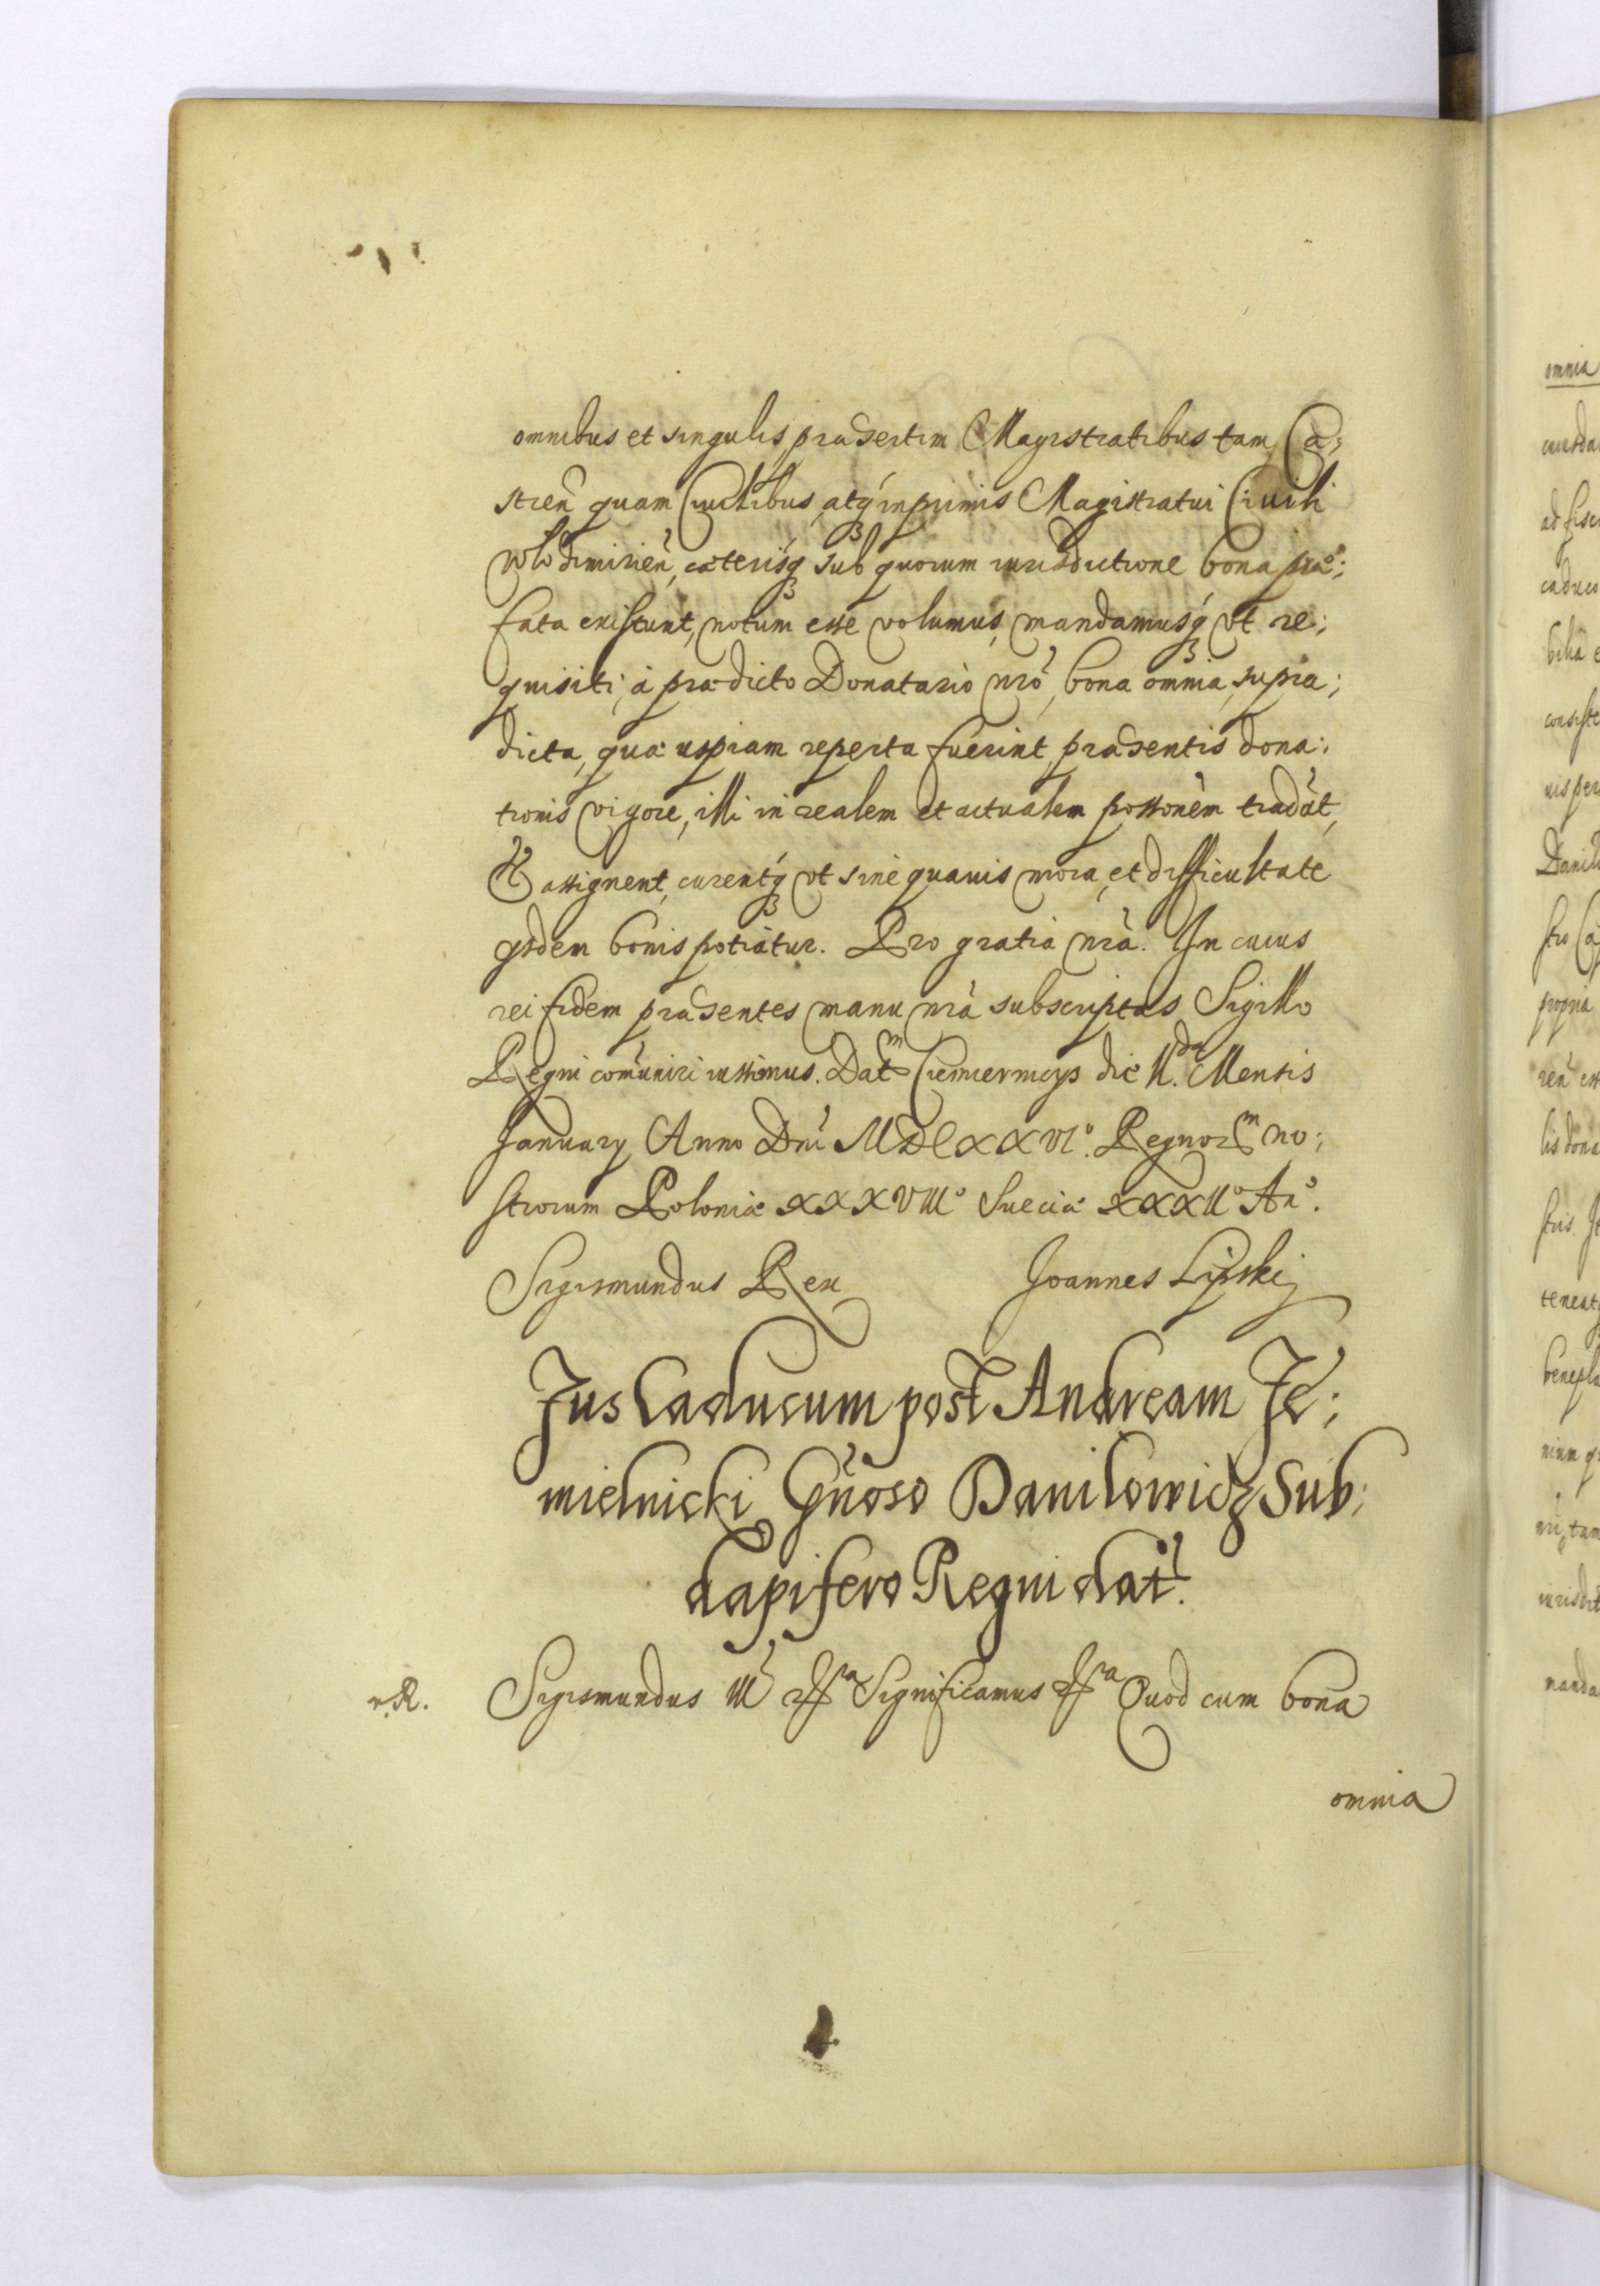 omnibus et singulis, præsertim Magistratibus tam Ca;
stren̄ quam Ciuilibus, atq́ inprimis Magistratui Ciuili
Wlodimirien̄, cæterisq́ sub quorum iurisdictione bona præ;
fata existunt, notum esse volumus, mandamusq́ vt re;
quisiti, à prædicto Donatario nr̄o, bona omnia, supra;
dicta, quæ uspiam reperta fuerint, præsentis dona;
tionis vigore, illi in realem et actualem possōnem tradāt,
Et assignent, curentq́ vt sine quauis mora, et difficultate
ysdem bonis potiatur. Pro gratia nr̄a. In cuius
rei fidem præsentes manu nr̄a subscriptas Sigillo
Regni com̄uniri iussimus. Datm die II.da Mensis
January Anno Dn̄i MDCXXVIo. Regnorm no;
strorum Poloniæ XXXVIIIo Sueciæ XXXIIo An̄o.
Sigismundus Rex Joannes Lipskj
Jus Caducum post Andream Je;
mielnicki Gn̄oso Danilowicz Sub;
dapifero Regni dat̄.
Sigismundus III Significamus Quod cum bona
omnia
omnia
ad fisc
caduco
consiste
Danil
propria